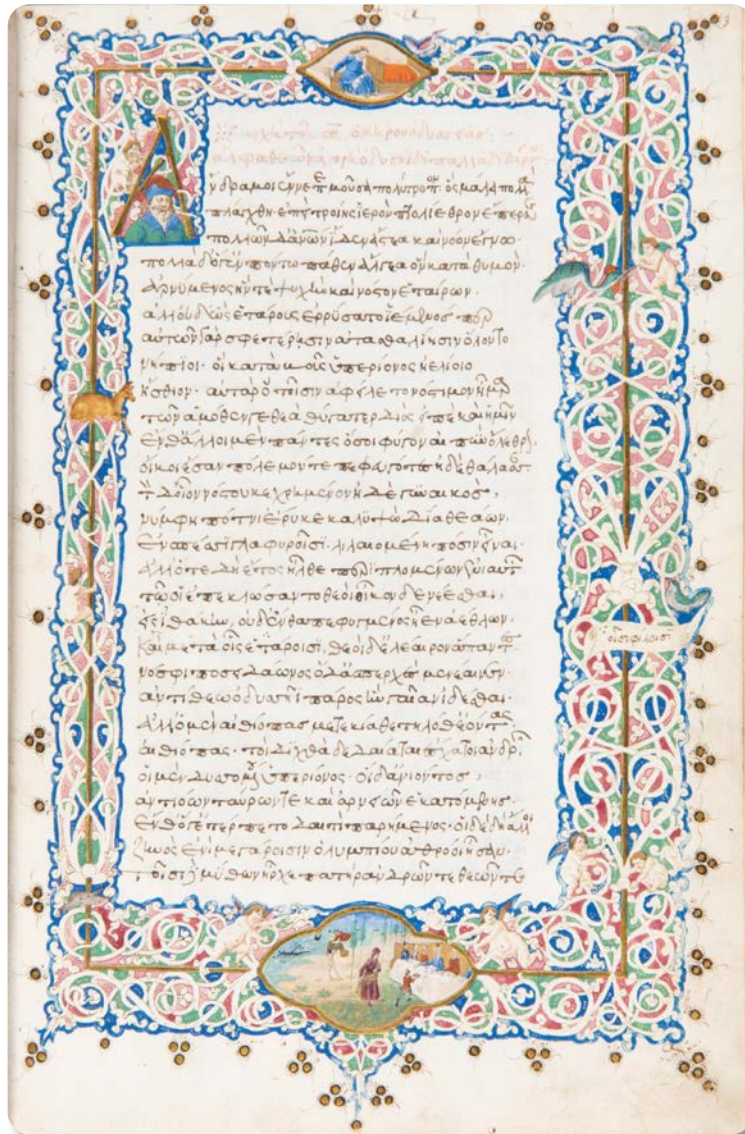 Ἄνδρα μοι ἔννεπε μοῦσα πολύτροπον ὃς μάλα πολλὰ
πλάγχθη ἐπεὶ τροίης ἱερὸν πτολίεθρον ἔπερσε
πολλῶν δ' ἀνων ἴδεν ἄστεα καὶ νόον ἔγνω·
πολλὰ δ' ὅγ' ἐν πόντω πάθεν ἄλγεα ὃν κατὰ θυμόν·
ἀρνύμενος ἥν τε ψυχὴν καὶ νόστον ἑταίρων.
ἀλλ' οὐδ' ὣς ἑτάρους ἐρρύσατο ἱέμενος περ
αὐτῶν γὰρ σφετέρησιν ἀτασθαλίησιν ὄλοντο
νήπιοι· οἳ κατὰ βοῦς ὑπερίονος ἠελίοιο
ἤσθιον· αὐτὰρ ὁ τοῖσιν ἀφείλετο νόστιμον ἦμαρ
τῶν ἁμόθεν γε θεὰ θύγατερ διὸς εἰπὲ καὶ ἡμῖν
ἔνθ' ἄλλοι μὲν πάντες ὅσοι φύγον αἰπὺν ὄλεθρον.
οἴκοι ἔσαν πόλεμόν τε πεφευγότες ἠδὲ θάλασσαν
τὸν δ' οἶον νόστου κεχρημένον ἠδὲ γυναικὸς,
νύμφη πότνι' ἔρυκε καλυψὼ δῖα θεάων·
ἐν σπέσσι γλαφυροῖσι, λιλαιομένη πόσιν εἶναι·
ἀλλ' ὅτε δὴ ἔτος ἦλθε περιπλομένων ἐνιαυτῶν
τῷ οἱ ἐπεκλώσαντο θεοὶ οἶκον δὲ νέεσθαι,
εἰς ἰθάκην, οὐδ' ἔνθα πεφυγμένος ἦεν ἀέθλων.
καὶ μετὰ οἷς ἑτάροισι, θεοὶ δ' ἐλέαιρον ἅπαντες
νόσφι ποσειδάωνος ὁ δ' ἀσπερχὲς μενέαινεν·
ἀντιθέω ὀδυσσῆι πάρος ἣν γαῖαν ἱκέσθαι·
ἀλλ' ὁ μὲν αἰθίοπας μετεκίαθε τηλόθ' ἐόντας
αἰθίοπας· τοὶ διχθὰ δεδαίαται ἔσχατοι ἀνδρῶν
οἱ μὲν δυσομένου ὑπερίονος· οἱ δ' ἀνιόντος,
ἀντιόων ταύρων τε καὶ ἀρνειῶν ἑκατόμβης·
ἔνθ' ὅγε τέρπετο δαιτὶ παρήμενος· οἱ δὲ δὴ ἄλλοι
ζηνὸς ἐνὶ μεγάροισιν ὀλυμπίου ἀθρόοι ἦσαν·
τοῖσι δὲ μύθων ἦρχε πατὴρ ἀνδρῶν τε θεῶν τε
οἷσι φίλοισι